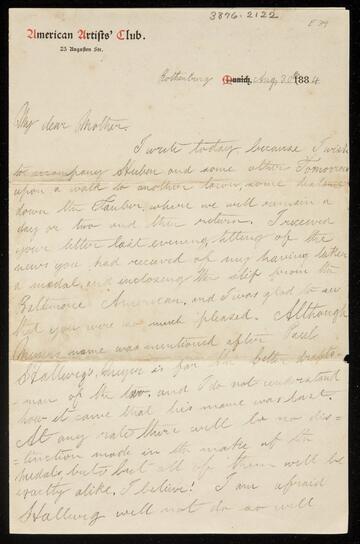 3876.2122
E 34
American Artists' Club.
25 Augusten Str.
Rothenburg Munich, Aug 30th 1884
My dear Mother.
I write today because I wish
to accompany Hueben and some other Tomorrow
upon a walk to another town, some distance
down the Tauber, where we will remain a
day or two and then return. I received
your letter last evening, telling of the
news you had received of my having taken
a medal, and inclosing the slip from the
Baltimore American, and I was glad to see
that you were so much pleased. Although
name was mentioned after Paul
Hallwig's, is far the better drafts-
man of the two, and I do not understand
how it came that his name was last.
At any rate there will be no dis-
=tinction made in the make of the
medals, but all of them will be
exactly alike, I believe! I am afraid
Hallwig will not do so well